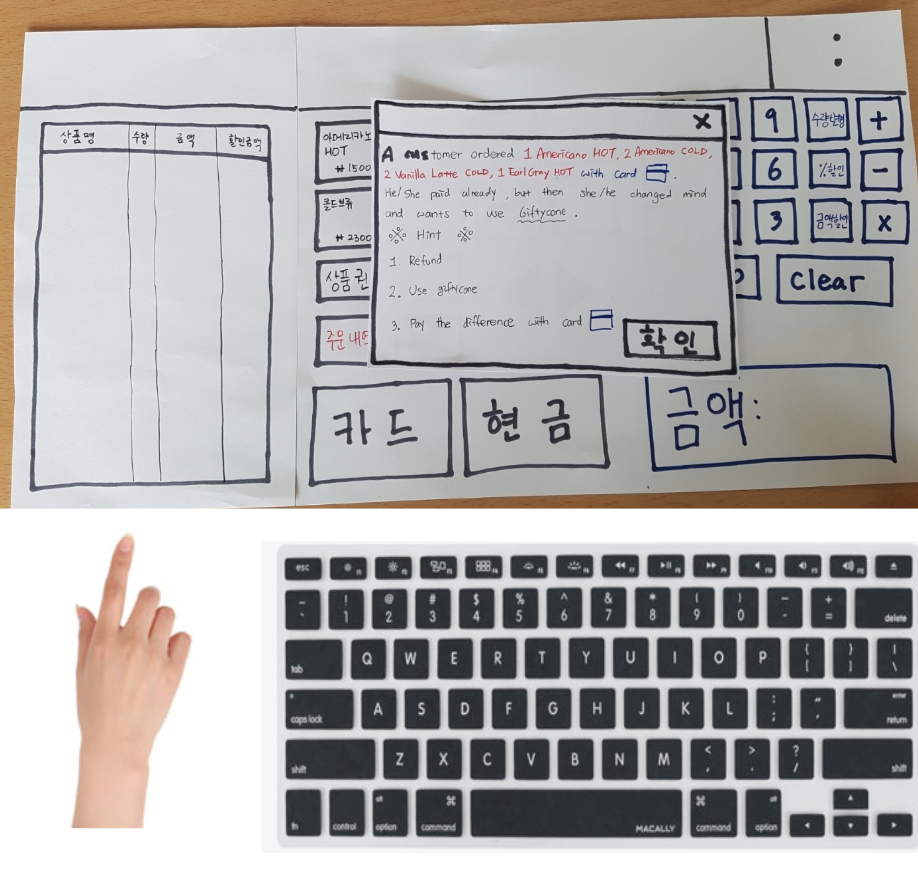 :
상품명 수량 금액 할인금액
아메리카노
HOT
₩1500
콜드브류
₩2300
상품권
주문내
X
A customer ordered 1 Americano HOT, 2 Americano COLD,
2 Vanilla Latte COLD, 1 Earl Gray HOT with card .
He/She paid already, but then she/he changed mind
and wants to use Giftycone.
※ Hint ※
1. Refund
2. Use giftycone
3. Pay the difference with card
확인
9 수량변형 +
6 %할인 -
3 금액할인 X
clear
카드 현금
금액:
esc F1 F2 F3 F4 F5 F6 F7 F8 F9 F10 F11 F12
~ ! @ # $ % ^ & * ( ) - +
` 1 2 3 4 5 6 7 8 9 0 - = delete
tab Q W E R T Y U I O P { [ } ] | \
caps lock A S D F G H J K L : ; " ' enter return
shift Z X C V B N M < , > . ? / shift
fn control alt option ⌘ command MACALLY ⌘ command alt option